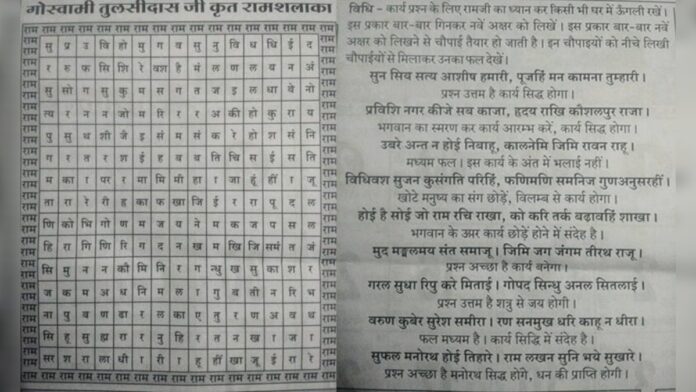 गोस्वामी तुलसीदास जी कृत रामशलाका
राम राम राम राम राम राम राम राम राम राम राम राम राम राम राम राम राम
सु प्र उ वि हो मु ग व सु नु वि ध धि ई द
र रु फ सि शि रे वश है मं ल ण ल य न अं
सु सो ग सु कु म स ग त ज इ ल धा वे नो
त्य र न न जो म रि र र अ की हो कु रा य
पु सु थ शी जे इ सं म सं क रे हो श सं नि
ग र त र श ई ह व ब ति चि सं ई स ति
म का । प र मा मि मी हा । जा हूं हीं । जू
ता रा रे री ह्र का फ खा जि ई र रा पू द ल
णि को भि गो ण म ज य ने म क ज प स ल
हि रा गि णि रि ग द न ख म खि जि मं त जं
सि मु न न कौ मि नि र ग न्धु ख सु का श र
ज क म अ ध नि म ल । गु ब ती न रि भ
ना पु व ण ढा र ल का ए तु र ण अ व थ
सि ह सु ह्मा रा र नु हि र त न खा । जा ।
सर श रा ला धी । री । ह् हीं खा जू ई रा रे
राम राम राम राम राम राम राम राम राम राम राम राम राम राम राम राम राम
विधि - कार्य प्रश्न के लिए रामजी का ध्यान कर किसी भी घर में ऊँगली रखें।
इस प्रकार बार-बार गिनकर नवें अक्षर को लिखें । इस प्रकार बार-बार नवें
अक्षर को लिखने से चौपाई तैयार हो जाती है। इन चौपाइयों को नीचे लिखी
चौपाईयों से मिलाकर उनका फल देखें।
सुन सिय सत्य आशीष हमारी, पूजहिं मन कामना तुम्हारी।
प्रश्न उत्तम है कार्य सिद्ध होगा।
प्रविशि नगर कीजे सब काजा, हृदय राखि कौशलपुर राजा।
भगवान का स्मरण कर कार्य आरम्भ करें, कार्य सिद्ध होगा।
उबरे अन्त न होई निबाहू, कालनेमि जिमि रावन राहू।
मध्यम फल। इस कार्य के अंत में भलाई नहीं।
विधिवश सुजन कुसंगति परिहिं, फणिमणि समनिज गुणअनुसरहीं।
खोटे मनुष्य का संग छोड़े, विलम्ब से कार्य होगा।
होई है सोई जो राम रचि राखा, को करि तर्क बढावहिं शाखा।
भगवान के उपर कार्य छोड़ें होने में संदेह है।
मुद मङ्गलमय संत समाजू। जिमि जग जंगम तीरथ राजू।
प्रश्न अच्छा है कार्य बनेगा।
गरल सुधा रिपु करे मिताई। गोपद सिन्धु अनल सितलाई।
प्रश्न उत्तम है शत्रु से जय होगी।
वरुण कुबेर सुरेश समीरा। रण सनमुख धरि काहू न धीरा।
फल मध्यम है। कार्य सिद्धि में संदेह है।
सुफल मनोरथ होई तिहारे। राम लखन सुनि भये सुखारे।
प्रश्न अच्छा है मनोरथ सिद्ध होगे, धन की प्राप्ति होगी।